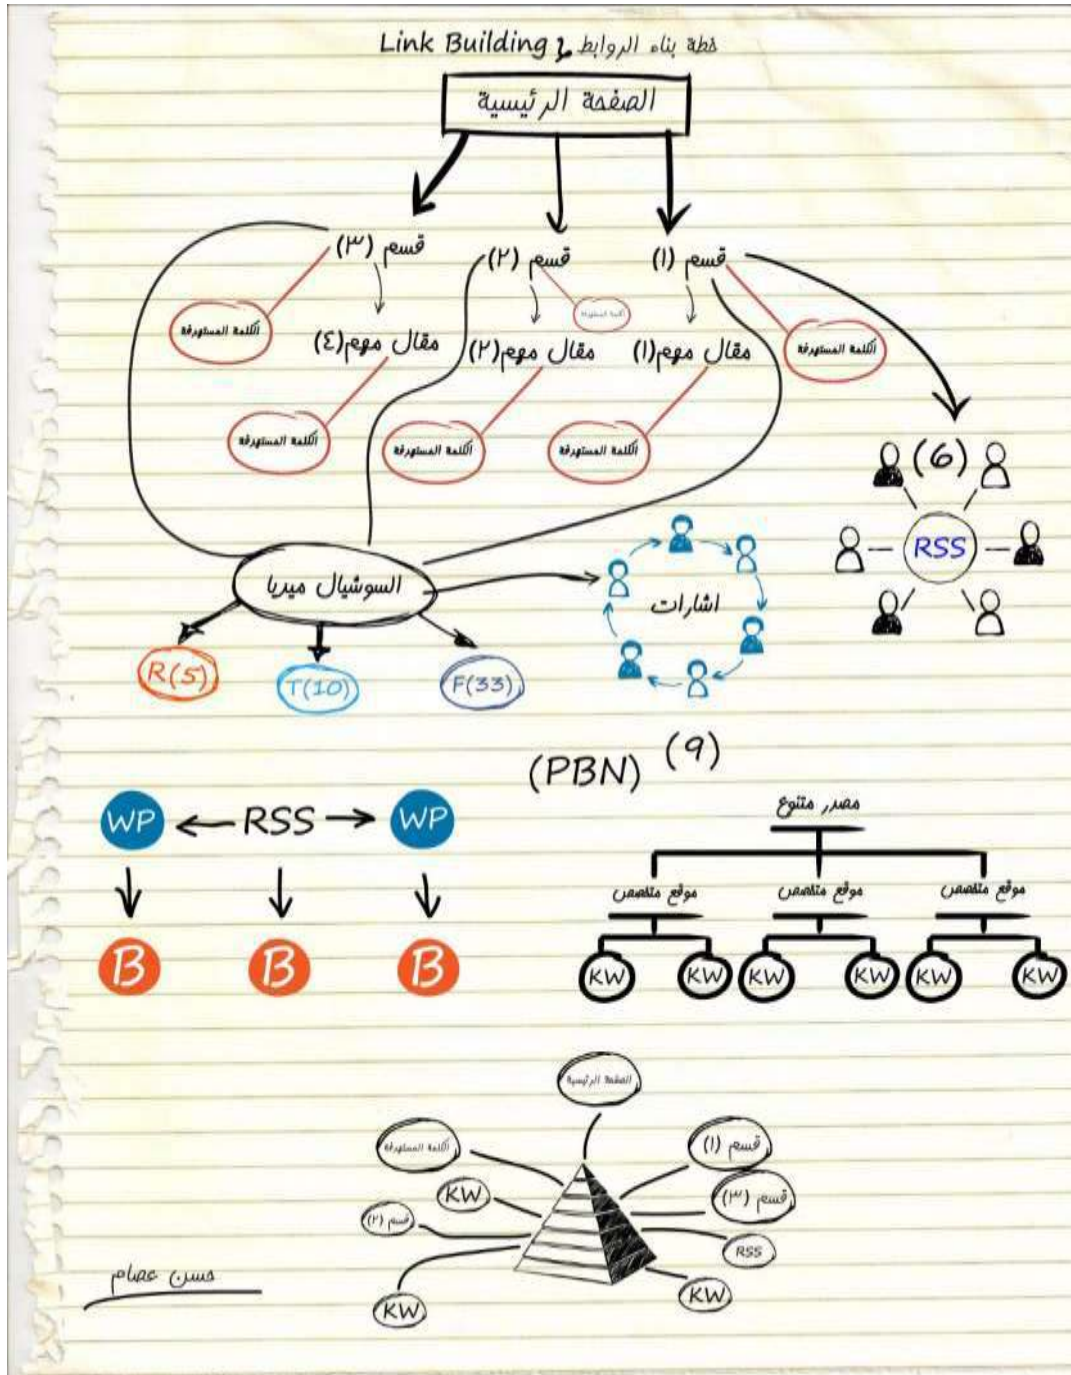 خطة بناء الروابط Link Building
الصفحة الرئيسية
قسم (١)
قسم (٢)
قسم (٣)
الكلمة المستهدفة
الكلمة المستهدفة
الكلمة المستهدفة
مقال مهم(١)
مقال مهم(٢)
مقال مهم(٤)
الكلمة المستهدفة
الكلمة المستهدفة
الكلمة المستهدفة
(6)
RSS
السوشيال ميديا
اشارات
R(5)
T(10)
F(33)
(PBN) (9)
WP ← RSS → WP
B B B
مصدر متنوع
موقع متخصص
موقع متخصص
موقع متخصص
KW KW KW KW KW KW
الصفحة الرئيسية
الكلمة المستهدفة
قسم (١)
KW
قسم (٣)
قسم (٢)
RSS
KW
KW
حسن عصام